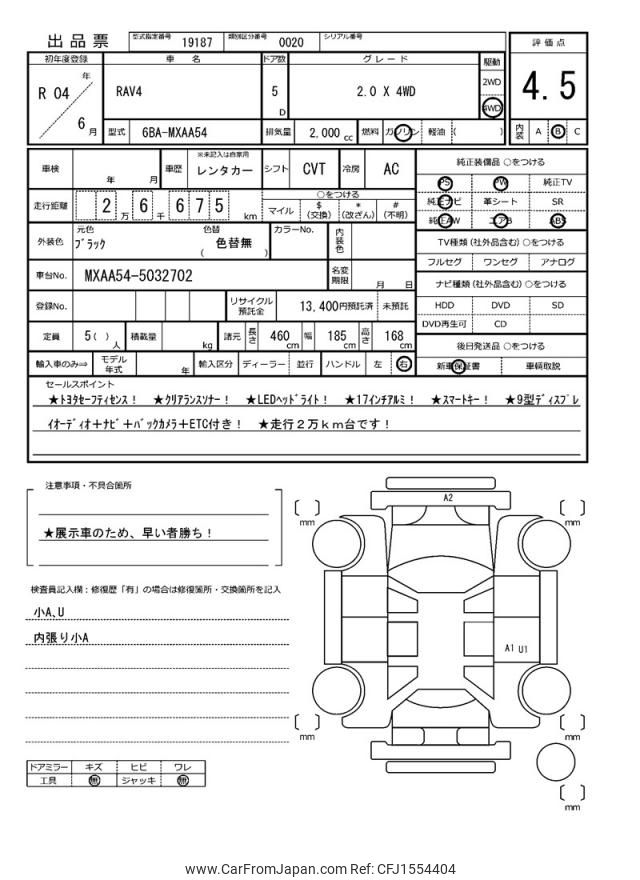 出品票 型式指定番号 19187 類別区分番号 0020 シリアル番号
初年度登録 車名 ドア数 グレード 駆動 評価点
R 04 年 6 月 RAV4 5 D 2.0 X 4WD 2WD 4WD 4.5
型式 6BA-MXAA54 排気量 2,000 cc 燃料 ガソリン 軽油 ( ) 内装 A B C
車検 年 月 車歴 ※未記入は自家用 レンタカー シフト CVT 冷房 AC
純正装備品 ○をつける
PS PW 純正TV
走行距離 2 万 6 千 6 7 5 km
○をつける
マイル $ (交換) * (改ざん) # (不明)
純正ナビ 革シート SR
純正AW エアB ABS
外装色 元色 ブラック 色替 色替無 ( ) カラーNo. 内装色
TV種類 (社外品含む) ○をつける
フルセグ ワンセグ アナログ
車台No. MXAA54-5032702 名変期限 月 日
ナビ種類 (社外品含む) ○をつける
HDD DVD SD
DVD再生可 CD
登録No. リサイクル預託金 13,400円預託済 未預託
定員 5 ( ) 人 積載量 kg 諸元 長さ 460 cm 幅 185 cm 高さ 168 cm
後日発送品 ○をつける
新車保証書 車輌取説
輸入車のみ⇒ モデル年式 年 輸入区分 ディーラー 並行 ハンドル 左 右
セールスポイント
★トヨタセーフティセンス! ★クリアランスソナー! ★LEDヘッドライト! ★17インチアルミ! ★スマートキー! ★9型ディスプレ
イオーディオ+ナビ+バックカメラ+ETC付き! ★走行2万km台です!
注意事項・不具合箇所
★展示車のため、早い者勝ち!
検査員記入欄:修復歴「有」の場合は修復箇所・交換箇所を記入
小A,U
内張り小A
A2
A1 U1
mm
mm
mm
mm
mm
ドアミラー キズ ヒビ ワレ
工具 無 ジャッキ 無
www.CarFromJapan.com Ref: CFJ1554404